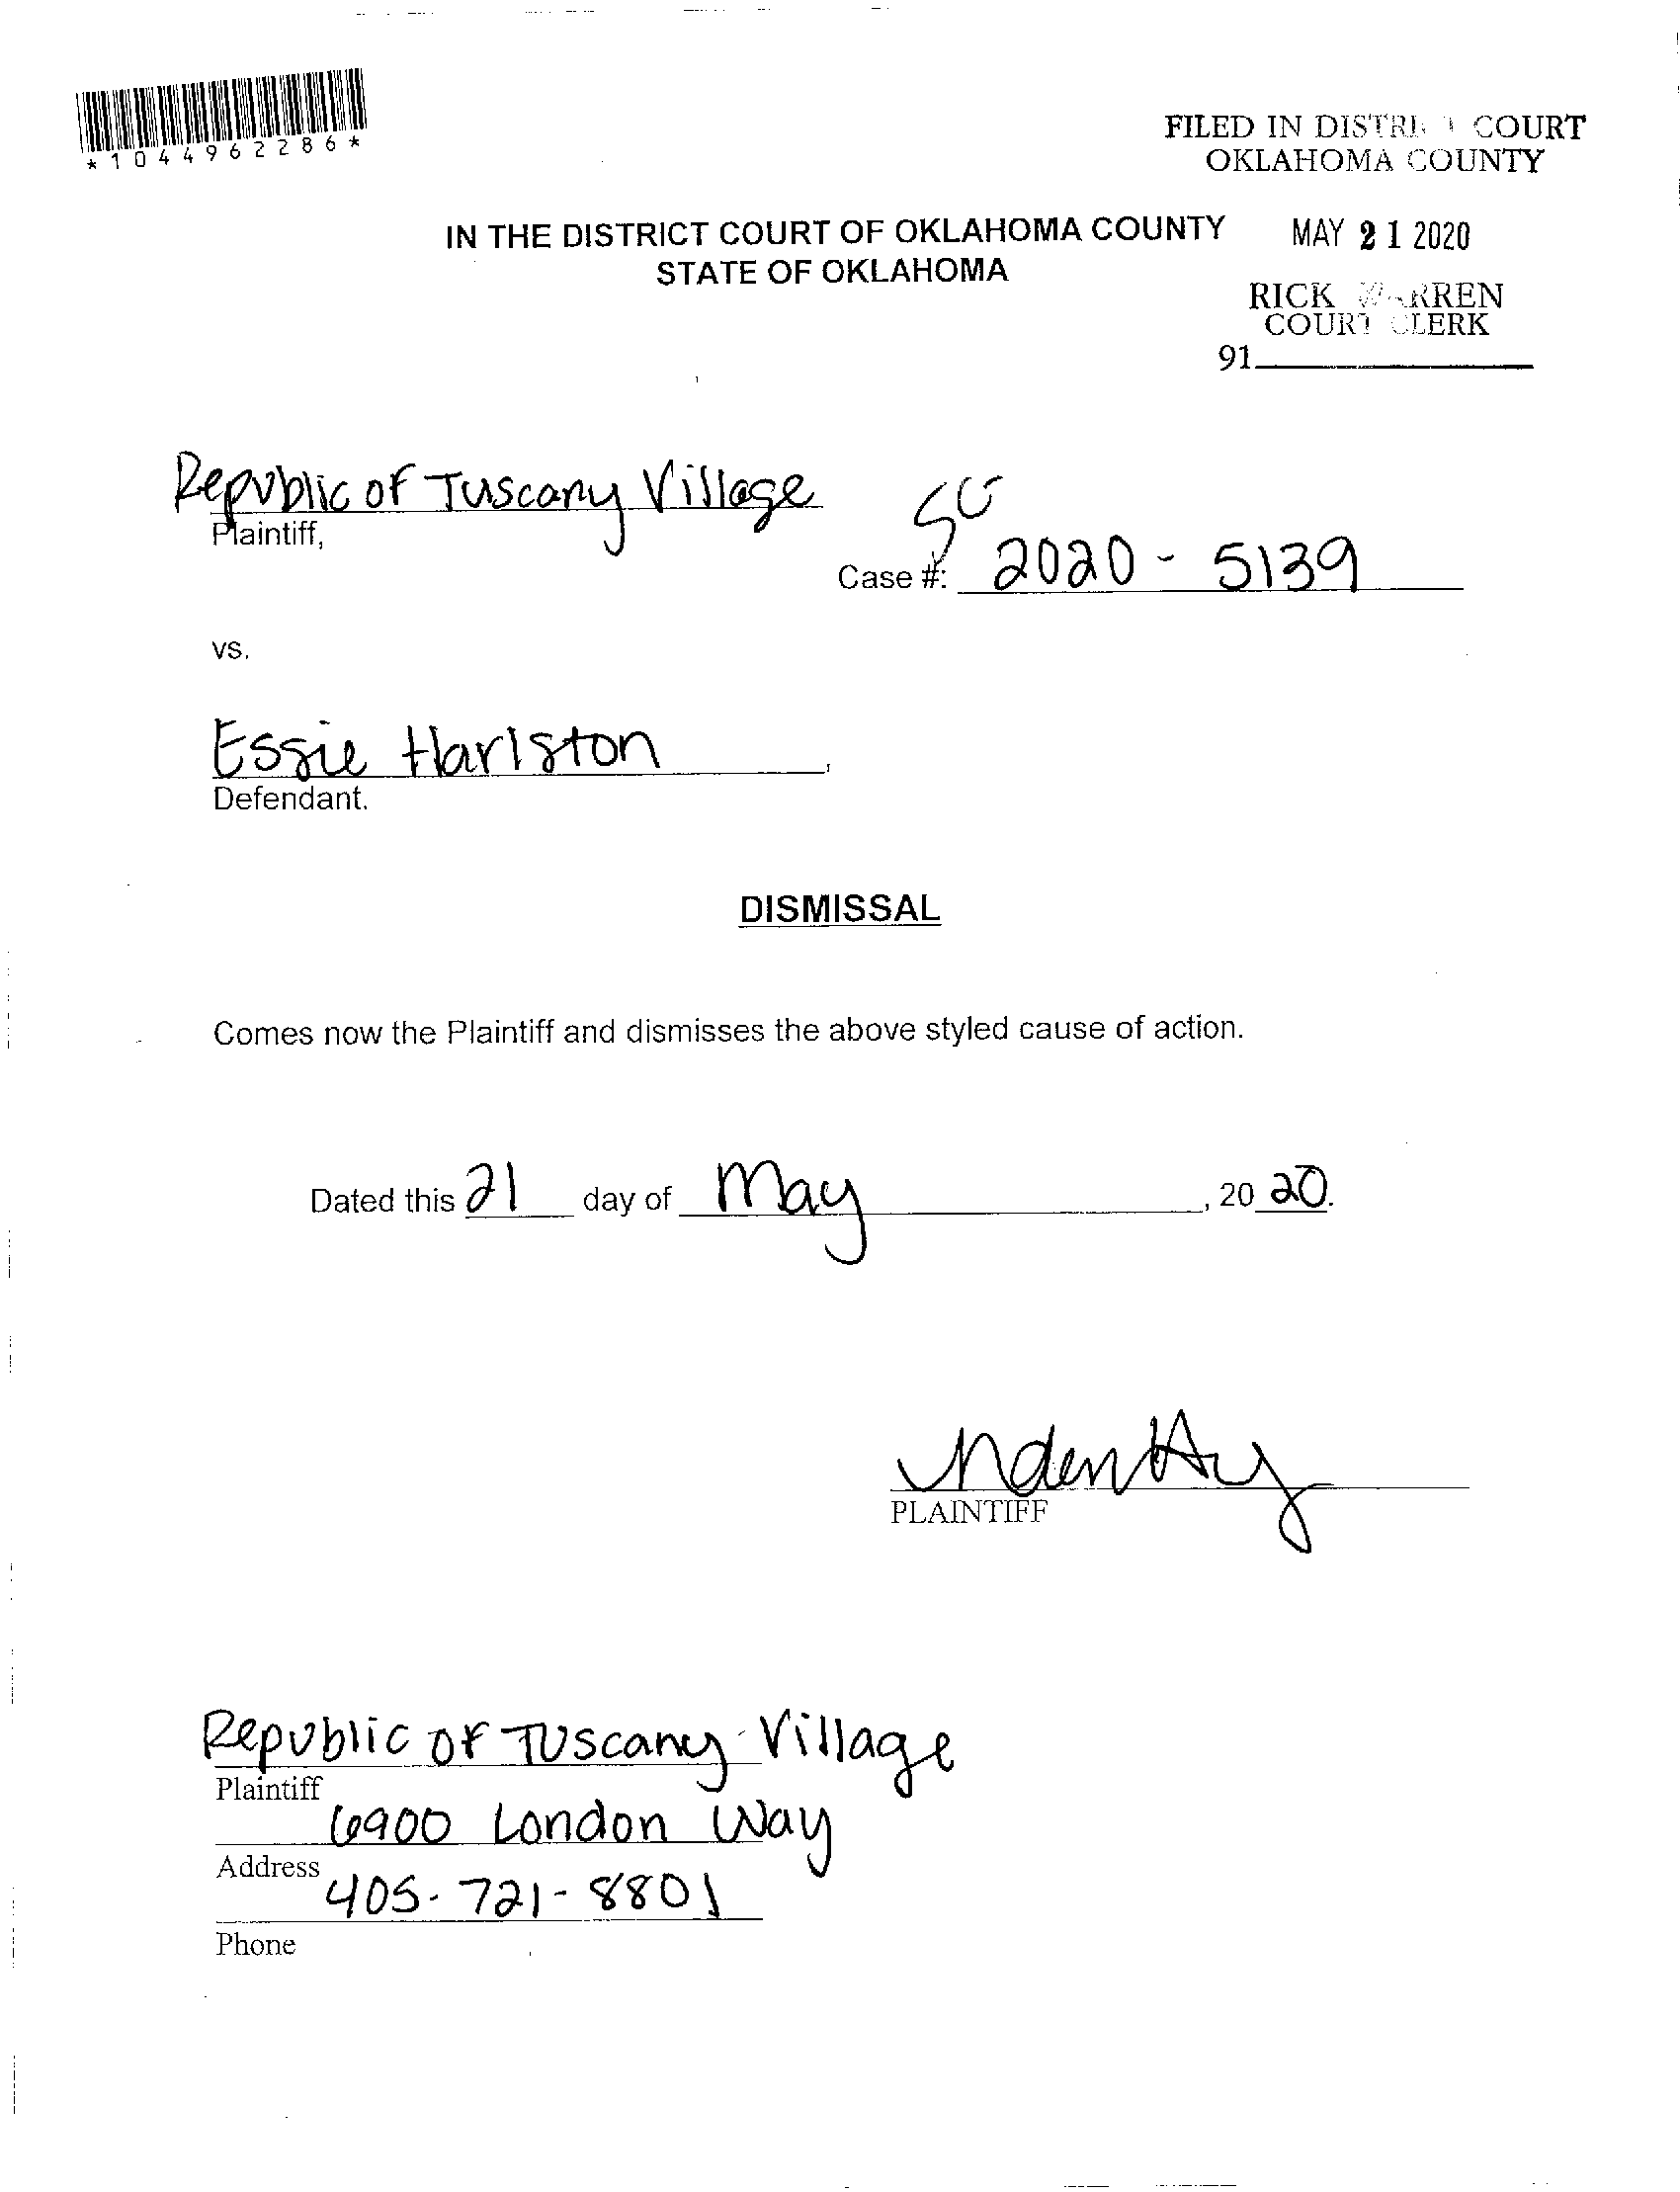 *1044962286*
FILED IN DISTRICT COURT
OKLAHOMA COUNTY
IN THE DISTRICT COURT OF OKLAHOMA COUNTY
STATE OF OKLAHOMA
MAY 21 2020
RICK WARREN
COURT CLERK
91
Republic of Tuscany Village
Plaintiff,
SC
Case #: 2020 - 5139
vs.
Essie Harlston,
Defendant.
DISMISSAL
Comes now the Plaintiff and dismisses the above styled cause of action.
Dated this 21 day of May, 2020.
PLAINTIFF
Republic of Tuscany Village
Plaintiff
6900 London Way
Address
405-721-8801
Phone